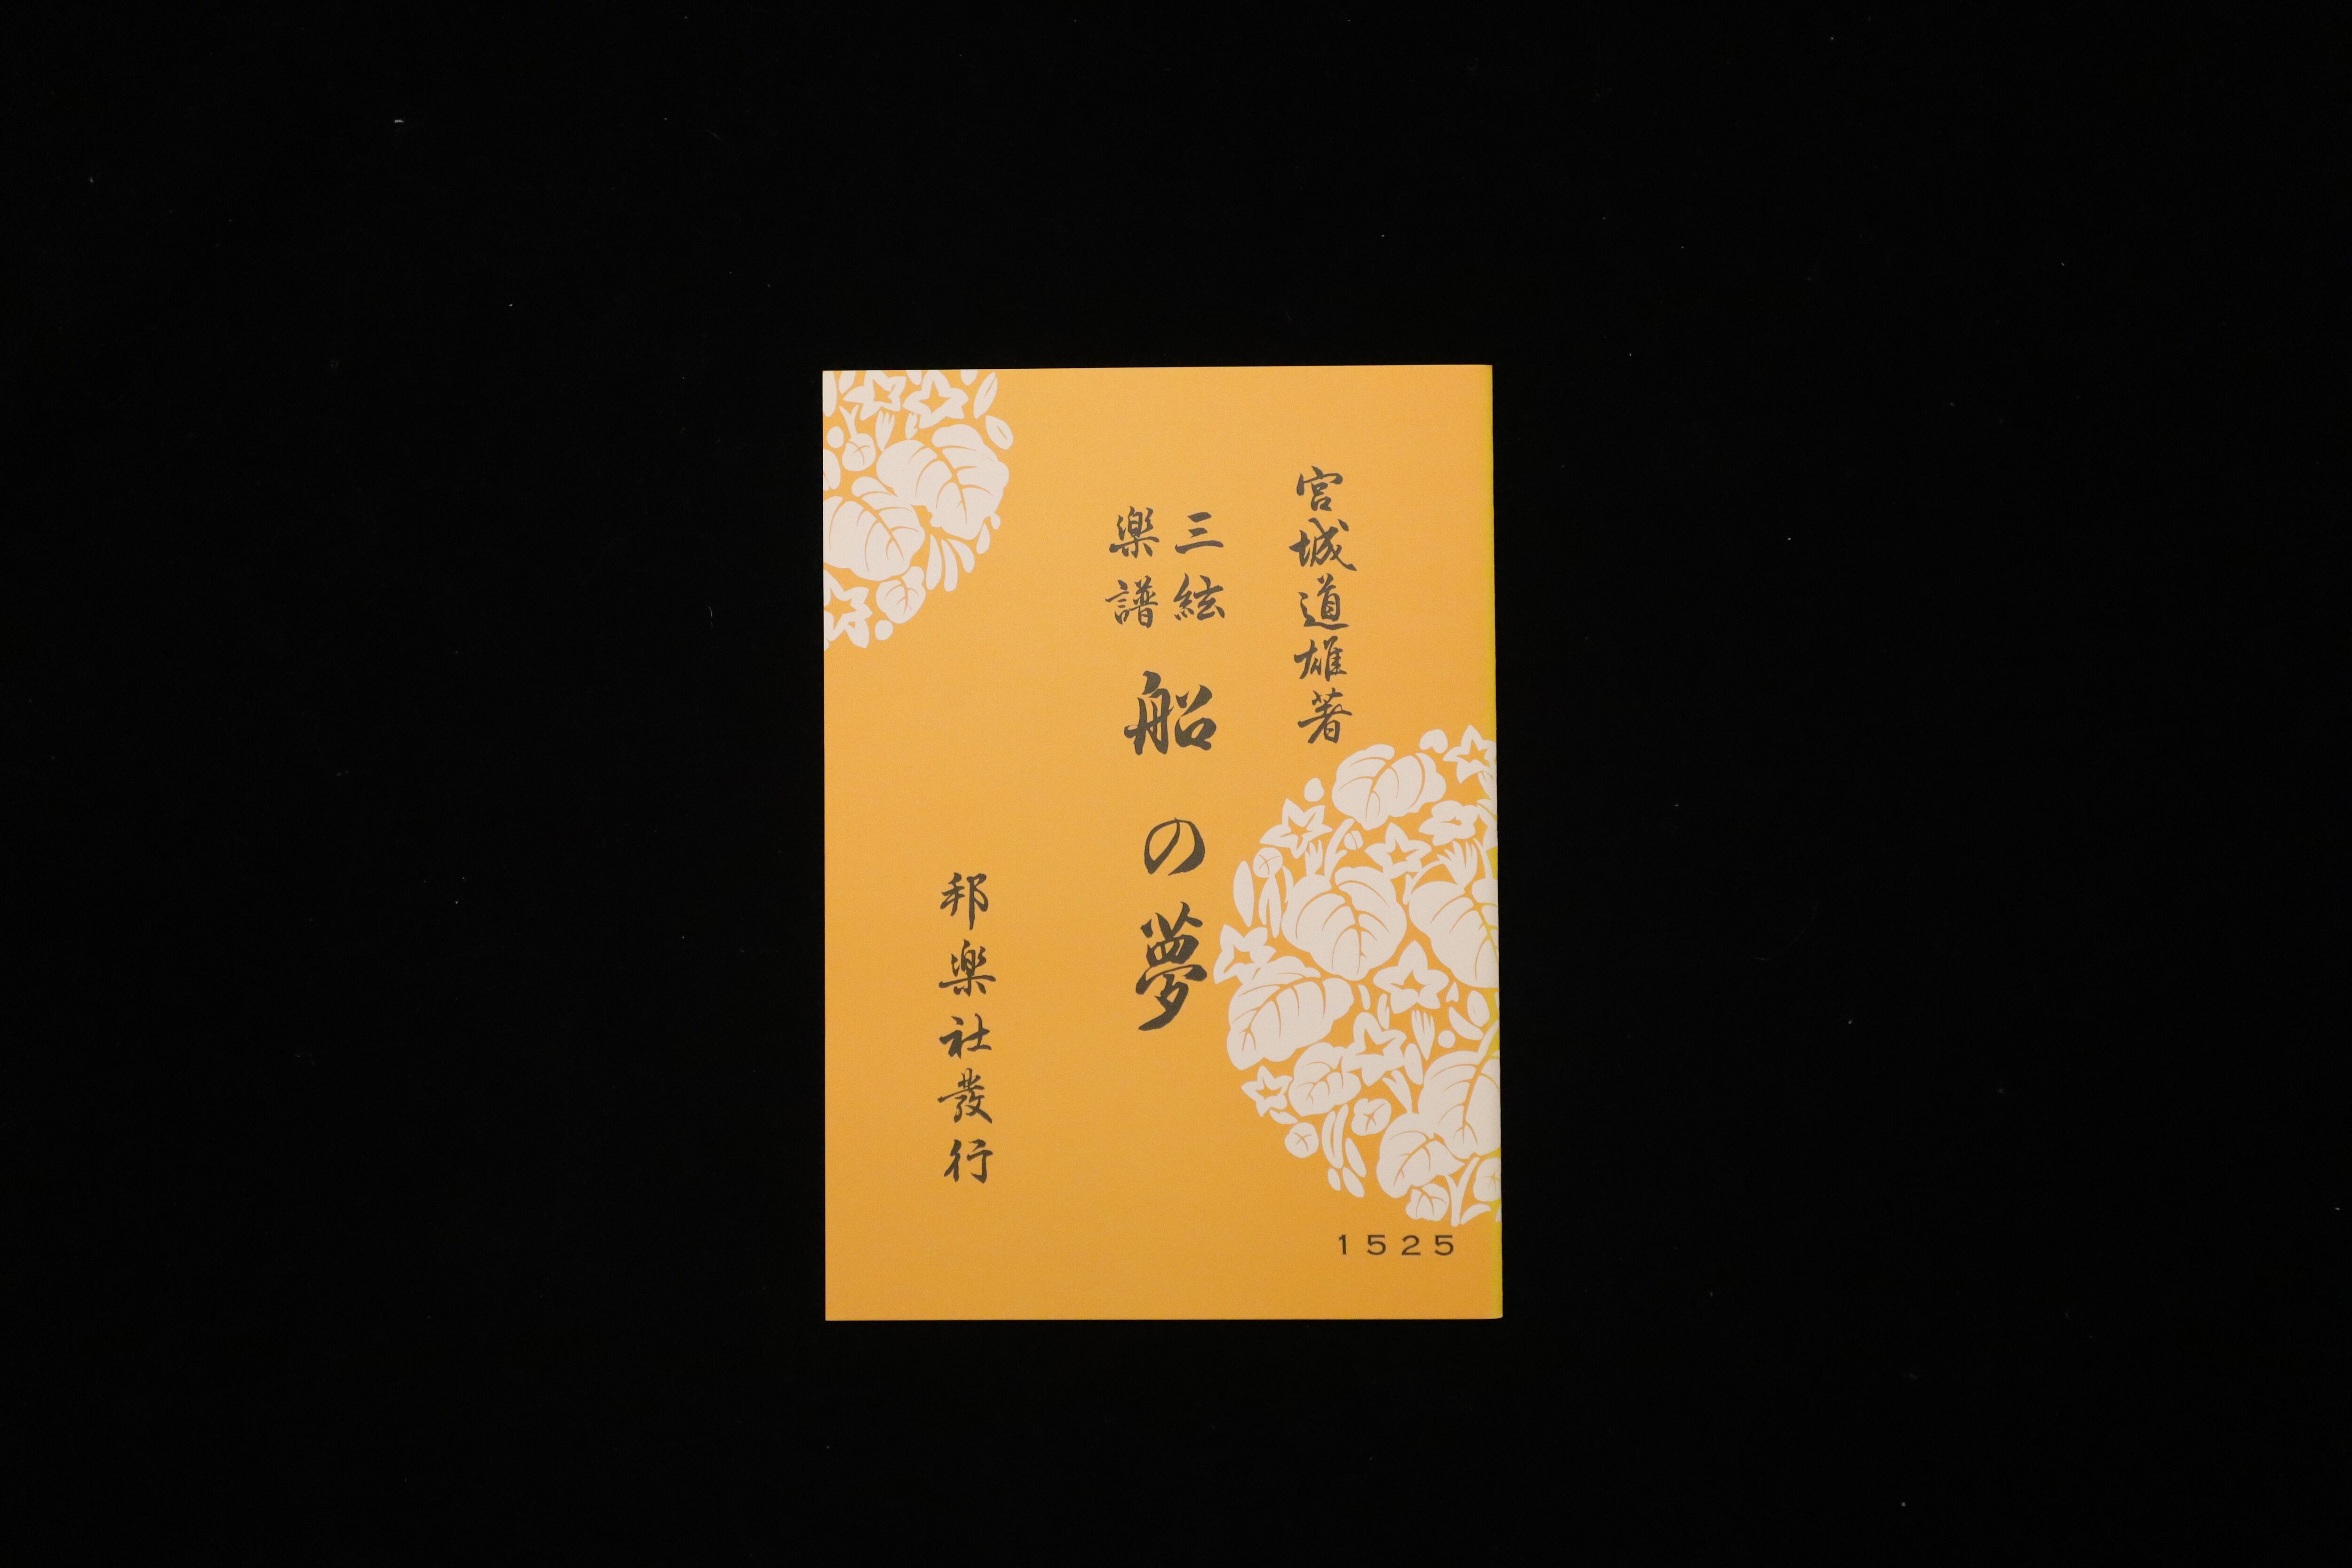 宮城道雄著
三絃
楽譜
船の夢
邦楽社發行
1525